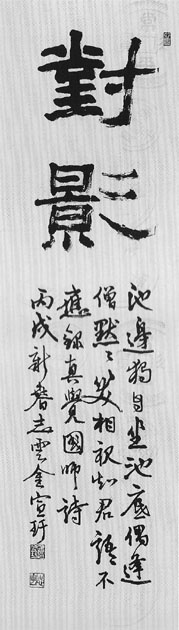 對影
池邊獨自坐池底偶逢
僧默〻笑相視知君語不
應 錄真覺國師詩
丙戌新春志雲金宣